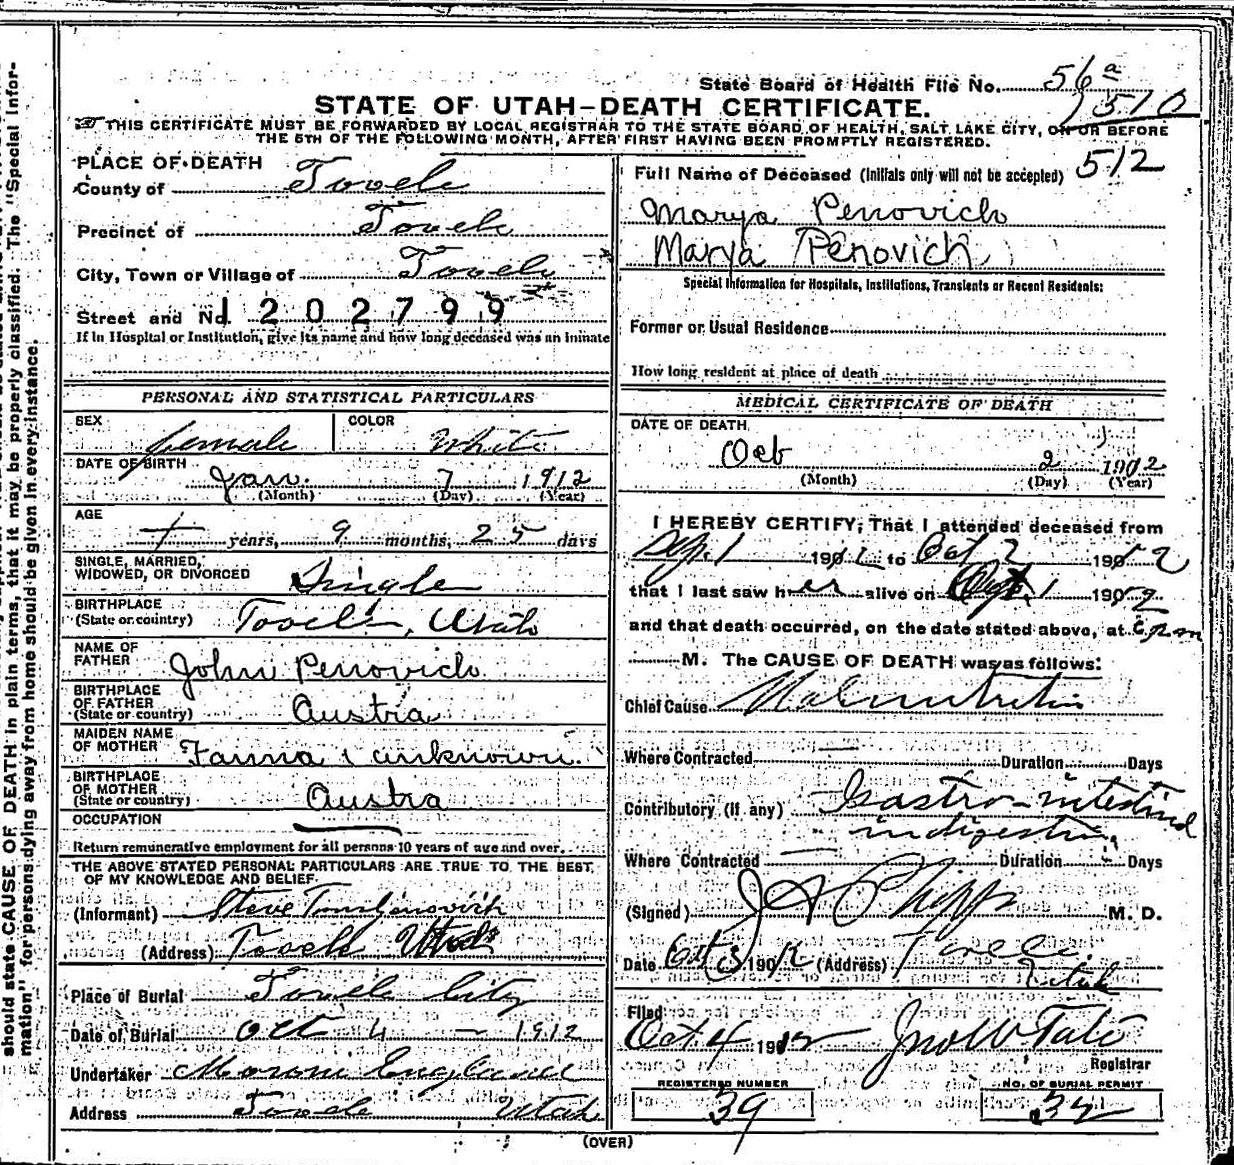 should state CAUSE OF DEATH in plain terms, that it may be properly classified. The "Special Infor-
mation" for persons dying away from home should be given in every instance.
State Board of Health File No. 56a
510
STATE OF UTAH–DEATH CERTIFICATE.
THIS CERTIFICATE MUST BE FORWARDED BY LOCAL REGISTRAR TO THE STATE BOARD OF HEALTH, SALT LAKE CITY, ON OR BEFORE
THE 5TH OF THE FOLLOWING MONTH, AFTER FIRST HAVING BEEN PROMPTLY REGISTERED.
PLACE OF DEATH
County of Tooele
Precinct of Tooele
City, Town or Village of Tooele
Street and No. 1202799
If in Hospital or Institution, give its name and how long deceased was an inmate
512
Full Name of Deceased (Initials only will not be accepted)
Marya Penovich
Marya Penovich
Special Information for Hospitals, Institutions, Transients or Recent Residents:
Former or Usual Residence
How long resident at place of death
PERSONAL AND STATISTICAL PARTICULARS
SEX female COLOR White
DATE OF BIRTH Jan. 7 1912
(Month) (Day) (Year)
AGE
years, 9 months, 25 days
SINGLE, MARRIED,
WIDOWED, OR DIVORCED Single
BIRTHPLACE
(State or country) Tooele, Utah
NAME OF
FATHER John Penovich
BIRTHPLACE
OF FATHER
(State or country) Austria
MAIDEN NAME
OF MOTHER Fanna unknown.
BIRTHPLACE
OF MOTHER
(State or country) Austra
OCCUPATION
Return remunerative employment for all persons 10 years of age and over.
THE ABOVE STATED PERSONAL PARTICULARS ARE TRUE TO THE BEST
OF MY KNOWLEDGE AND BELIEF
(Informant) Steve
(Address) Tooele Utah
Place of Burial Tooele City
Date of Burial Oct 4 – 1912
Undertaker Moroni England
Address Tooele Utah
MEDICAL CERTIFICATE OF DEATH
DATE OF DEATH
2 1902
(Month) (Day) (Year)
I HEREBY CERTIFY, That I attended deceased from
1 1912 to Oct 2 1912
that I last saw her alive on Oct. 1 1912
and that death occurred, on the date stated above, at 6 pm
M. The CAUSE OF DEATH was as follows:
Chief Cause Malnutrition
Where Contracted Duration Days
Contributory (If any) Gastro-intestinal
indigestion
Where Contracted Duration Days
(Signed) J A Phipps M. D.
Date Oct 3 1912 (Address) Tooele
Utah
Filed
Oct 4 1912 Jno W Tate
Registrar
REGISTERED NUMBER
39
NO. OF BURIAL PERMIT
32
(OVER)